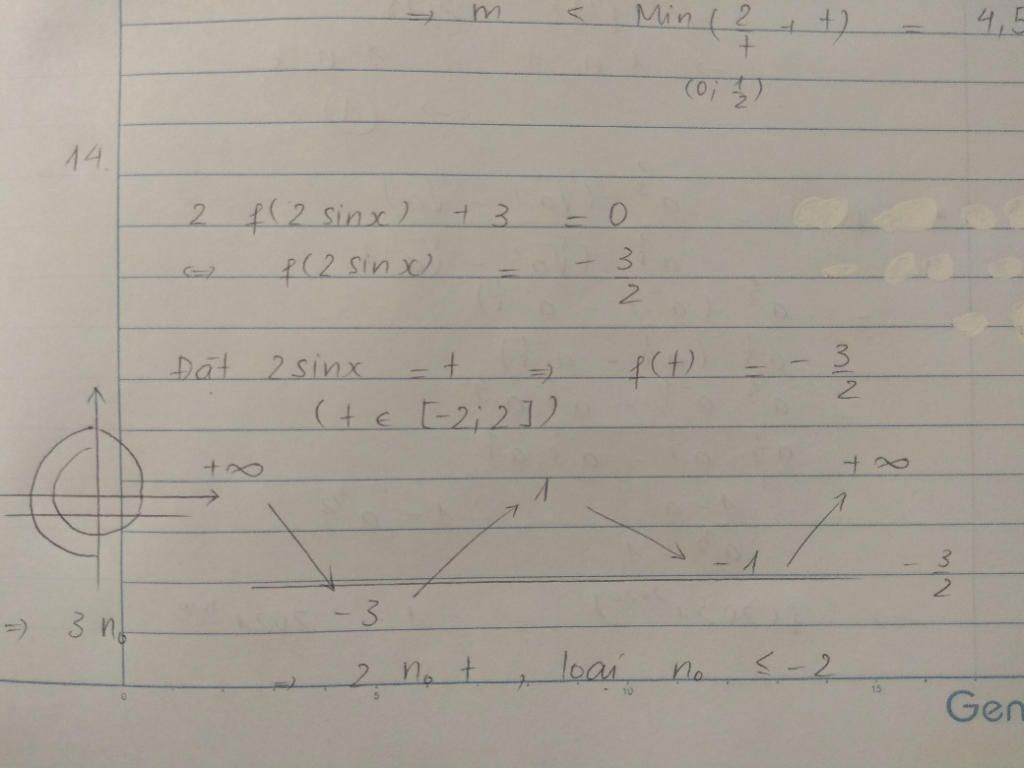 => m < Min ( 2/t + t ) = 4,5
(0; 1/2)
14.
2 f(2 sinx) + 3 = 0
<=> f(2 sinx) = - 3/2
Đặt 2sinx = t => f(t) = - 3/2
( t ∈ [-2; 2] )
+∞ 1 +∞
-3 -1 - 3/2
=> 3 no
=> 2 no t , loại no ≤ -2
0 5 10 15
Gen